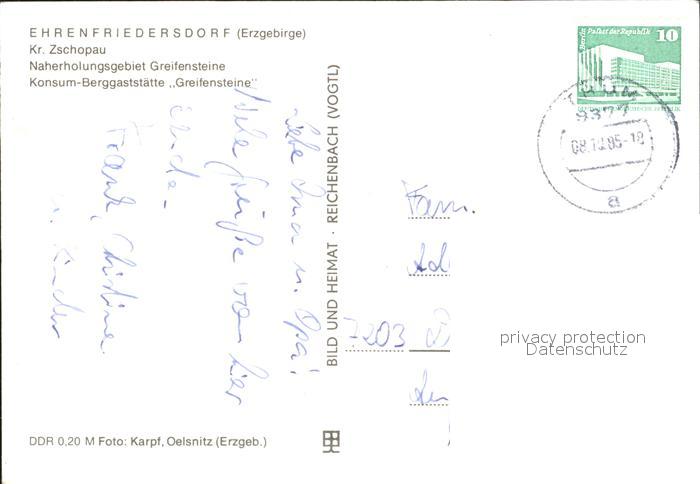 EHRENFRIEDERSDORF (Erzgebirge)
Kr. Zschopau
Naherholungsgebiet Greifensteine
Konsum-Berggaststätte „Greifensteine"
Liebe Oma u. Opa!
Viele Grüße von hier
Frank, Christine
u. Kinder
BILD UND HEIMAT · REICHENBACH (VOGTL)
Berlin Palast der Republik
10
9377
08.10.85-18
a
Fam.
Ad
7203
privacy protection
Datenschutz
DDR 0,20 M Foto: Karpf, Oelsnitz (Erzgeb.)